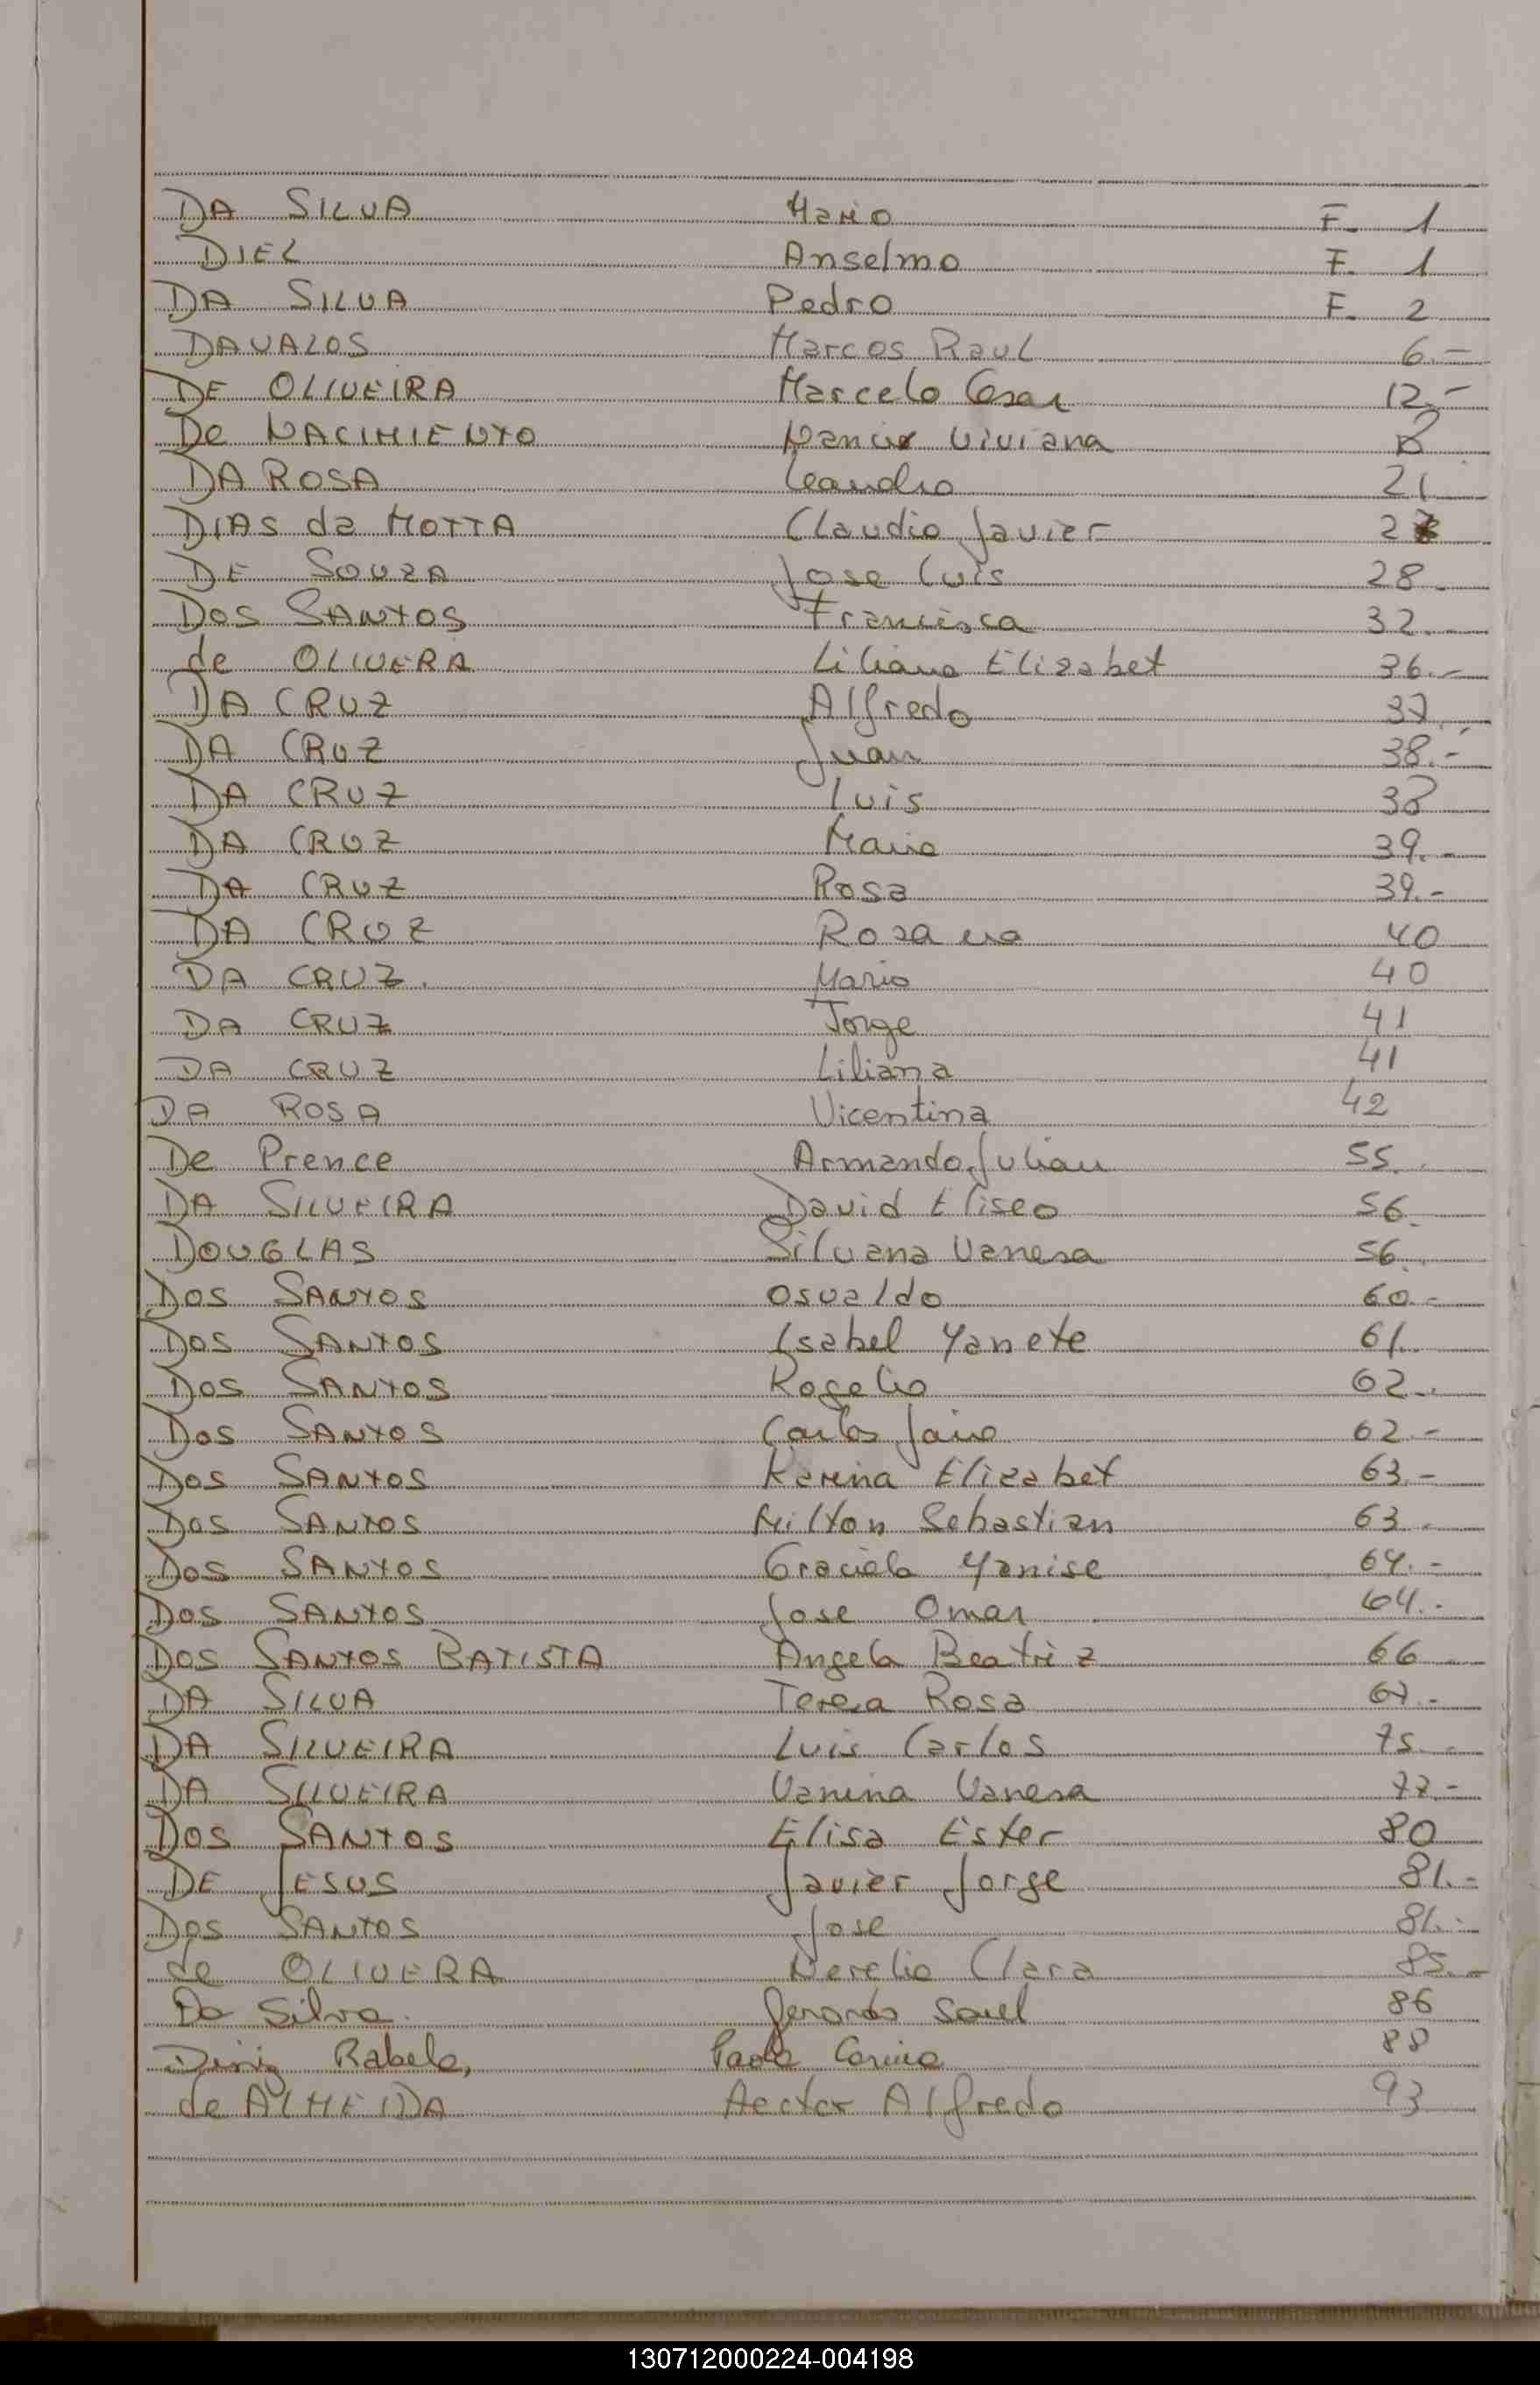 DA SILVA Mario F. 1
DIEL Anselmo F. 1
DA SILVA Pedro F. 2
DAVALOS Marcos Raul 6.-
DE OLIVEIRA Marcelo Cesar 12.-
De NACIMIENTO Viviana
DA ROSA Leandro 21
DIAS da MOTTA Claudio Javier
DE SOUZA Jose Luis 28.
DOS SANTOS Francisca 32.
de OLIVERA Liliana Elizabet 36.-
DA CRUZ Alfredo 37.-
DA CRUZ Juan 38.-
DA CRUZ Luis 38
DA CRUZ Maria 39.-
DA CRUZ Rosa 39.-
DA CRUZ Rosana 40
DA CRUZ. Mario 40
DA CRUZ Jorge 41
DA CRUZ Liliana 41
DA ROSA Vicentina 42
De Prence Armando Julian 55.
DA SILVEIRA David Eliseo 56.
DOUGLAS Silvana Vanesa 56.
DOS SANTOS Osvaldo 60.-
DOS SANTOS Isabel Yanete 61.
DOS SANTOS Rogelio 62.-
DOS SANTOS Carlos Jairo 62.-
DOS SANTOS Karina Elizabet 63.-
DOS SANTOS Milton Sebastian 63.
DOS SANTOS Graciela Yanise 64.-
DOS SANTOS Jose Omar 64.-
DOS SANTOS BATISTA Angela Beatriz 66
DA SILVA Teresa Rosa 67.-
DA SILVEIRA Luis Carlos 75.-
DA SILVEIRA Vanina Vanesa 77.-
DOS SANTOS Elisa Ester 80
DE JESUS Javier Jorge 81.-
DOS SANTOS Jose 81.-
de OLIVERA Nerelia Clara 85.-
Da Silva. Gerardo Saul 86
Diniz Rabelo, Paola Carina 88
de ALMEIDA Hector Alfredo 93
130712000224-004198